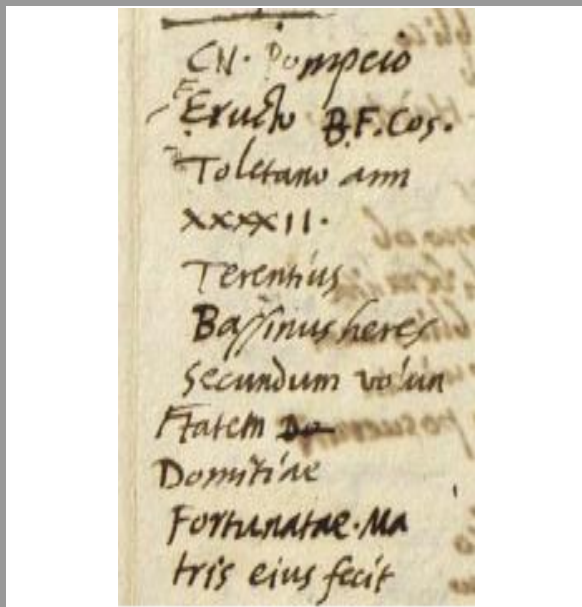 CN. Pompeio
Eructo B.F. Cos.
Toletano ann
XXXXII.
Terentius
Bassinus heres
secundum volun
tatem Do
Domitiae
Fortunatae. Ma
tris eius fecit